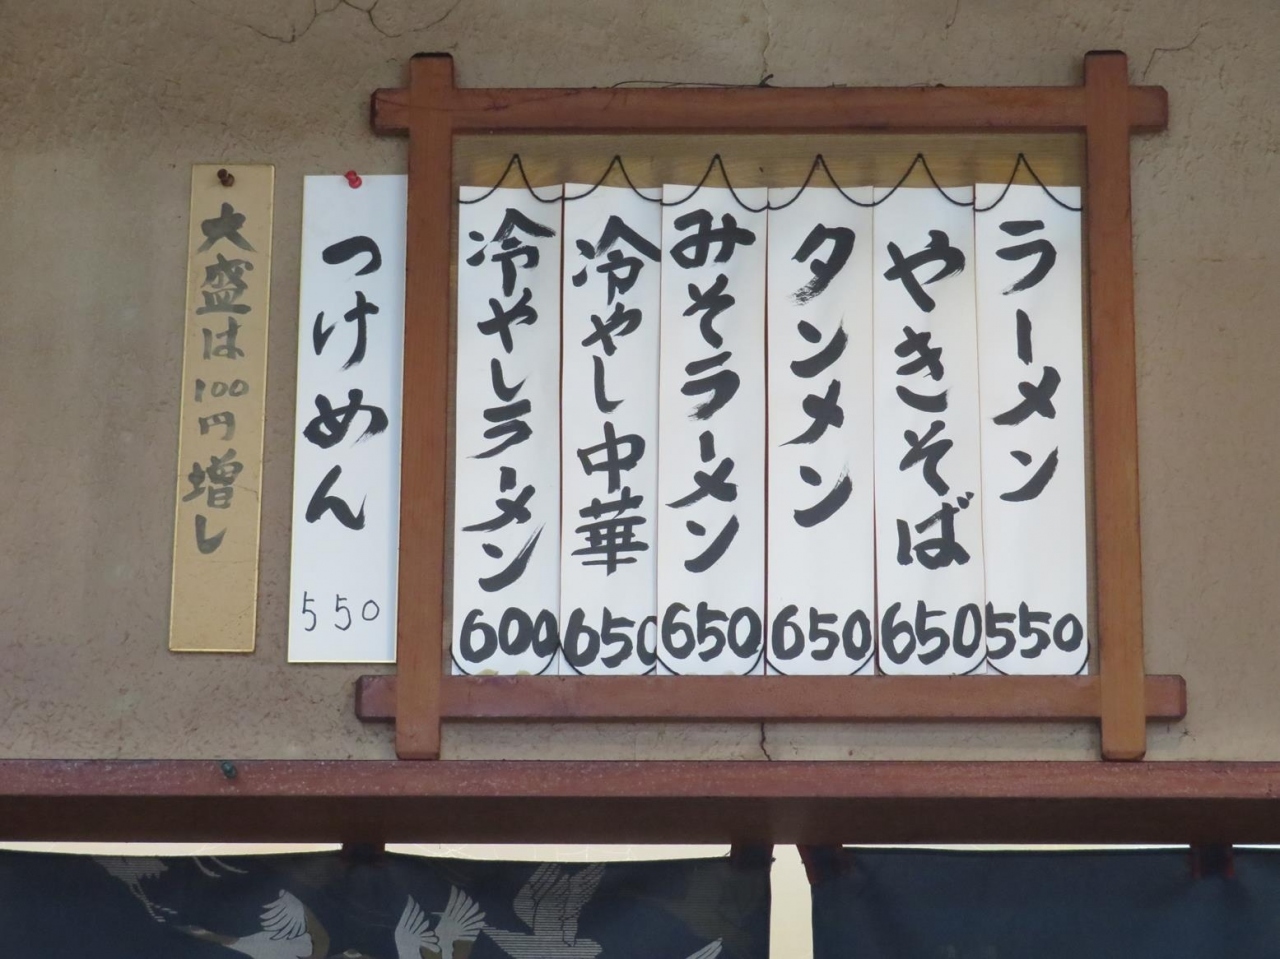 ラーメン
550
やきそば
650
タンメン
650
みそラーメン
650
冷やし中華
650
冷やしラーメン
600
つけめん
550
大盛は100円増し